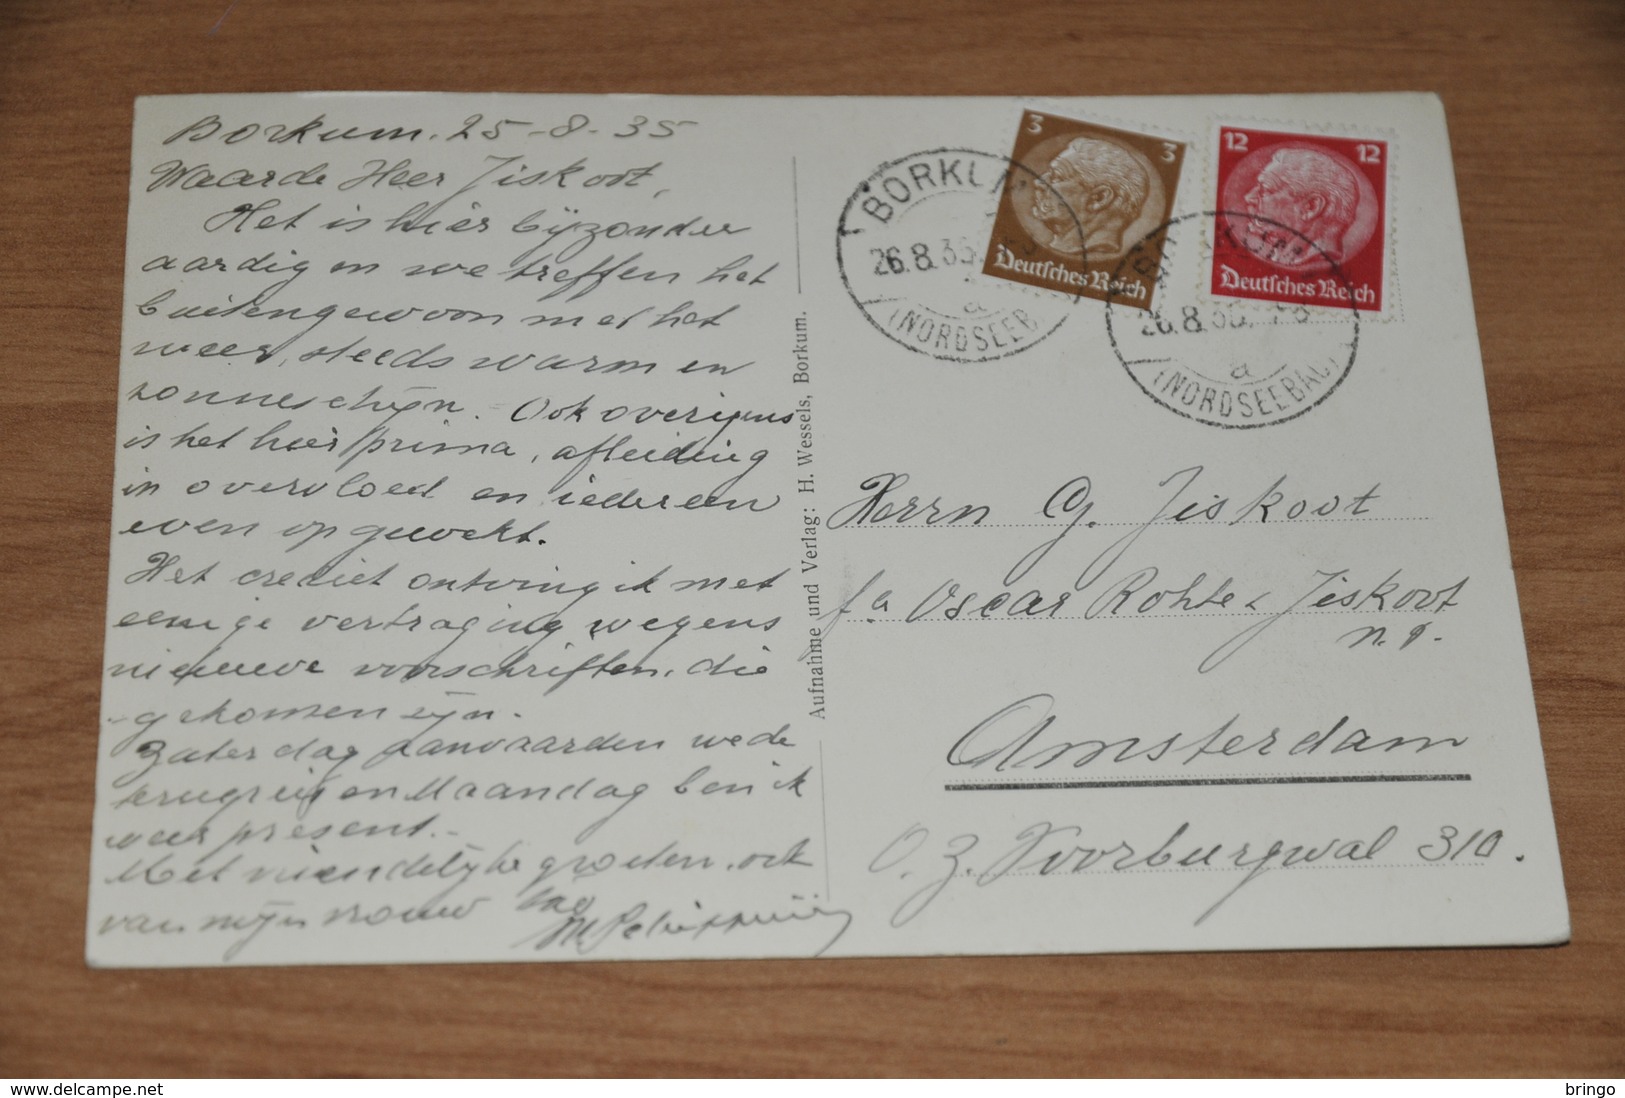 Borkum. 25-8-35
Waarde Heer Jiskoot,
Het is hier bijzonder
aardig en we treffen het
buitengewoon met het
weer, steeds warm en
zonneschijn. Ook overigens
is het hier prima, afleiding
in overvloed en iedereen
even opgewekt.
Het crediet ontving ik met
eenige vertraging wegens
nieuwe voorschriften, die
gekomen zijn.
Zaterdag aanvaarden we de
terugreis en Maandag ben ik
weer present.-
Met vriendelijke groeten, ook
van mijn vrouw
Aufnahme und Verlag: H. Wessels, Borkum.
3 3
Deutsches Reich
12 12
Deutsches Reich
BORKUM
26.8.35.
a
(NORDSEEB
26.8.35.
a
(NORDSEEBAD)
Herrn G. Jiskoot
fa Oscar Rohte & Jiskoot
n.v.
Amsterdam
O. Z. Voorburgwal 310.
delcampe.net
bringo